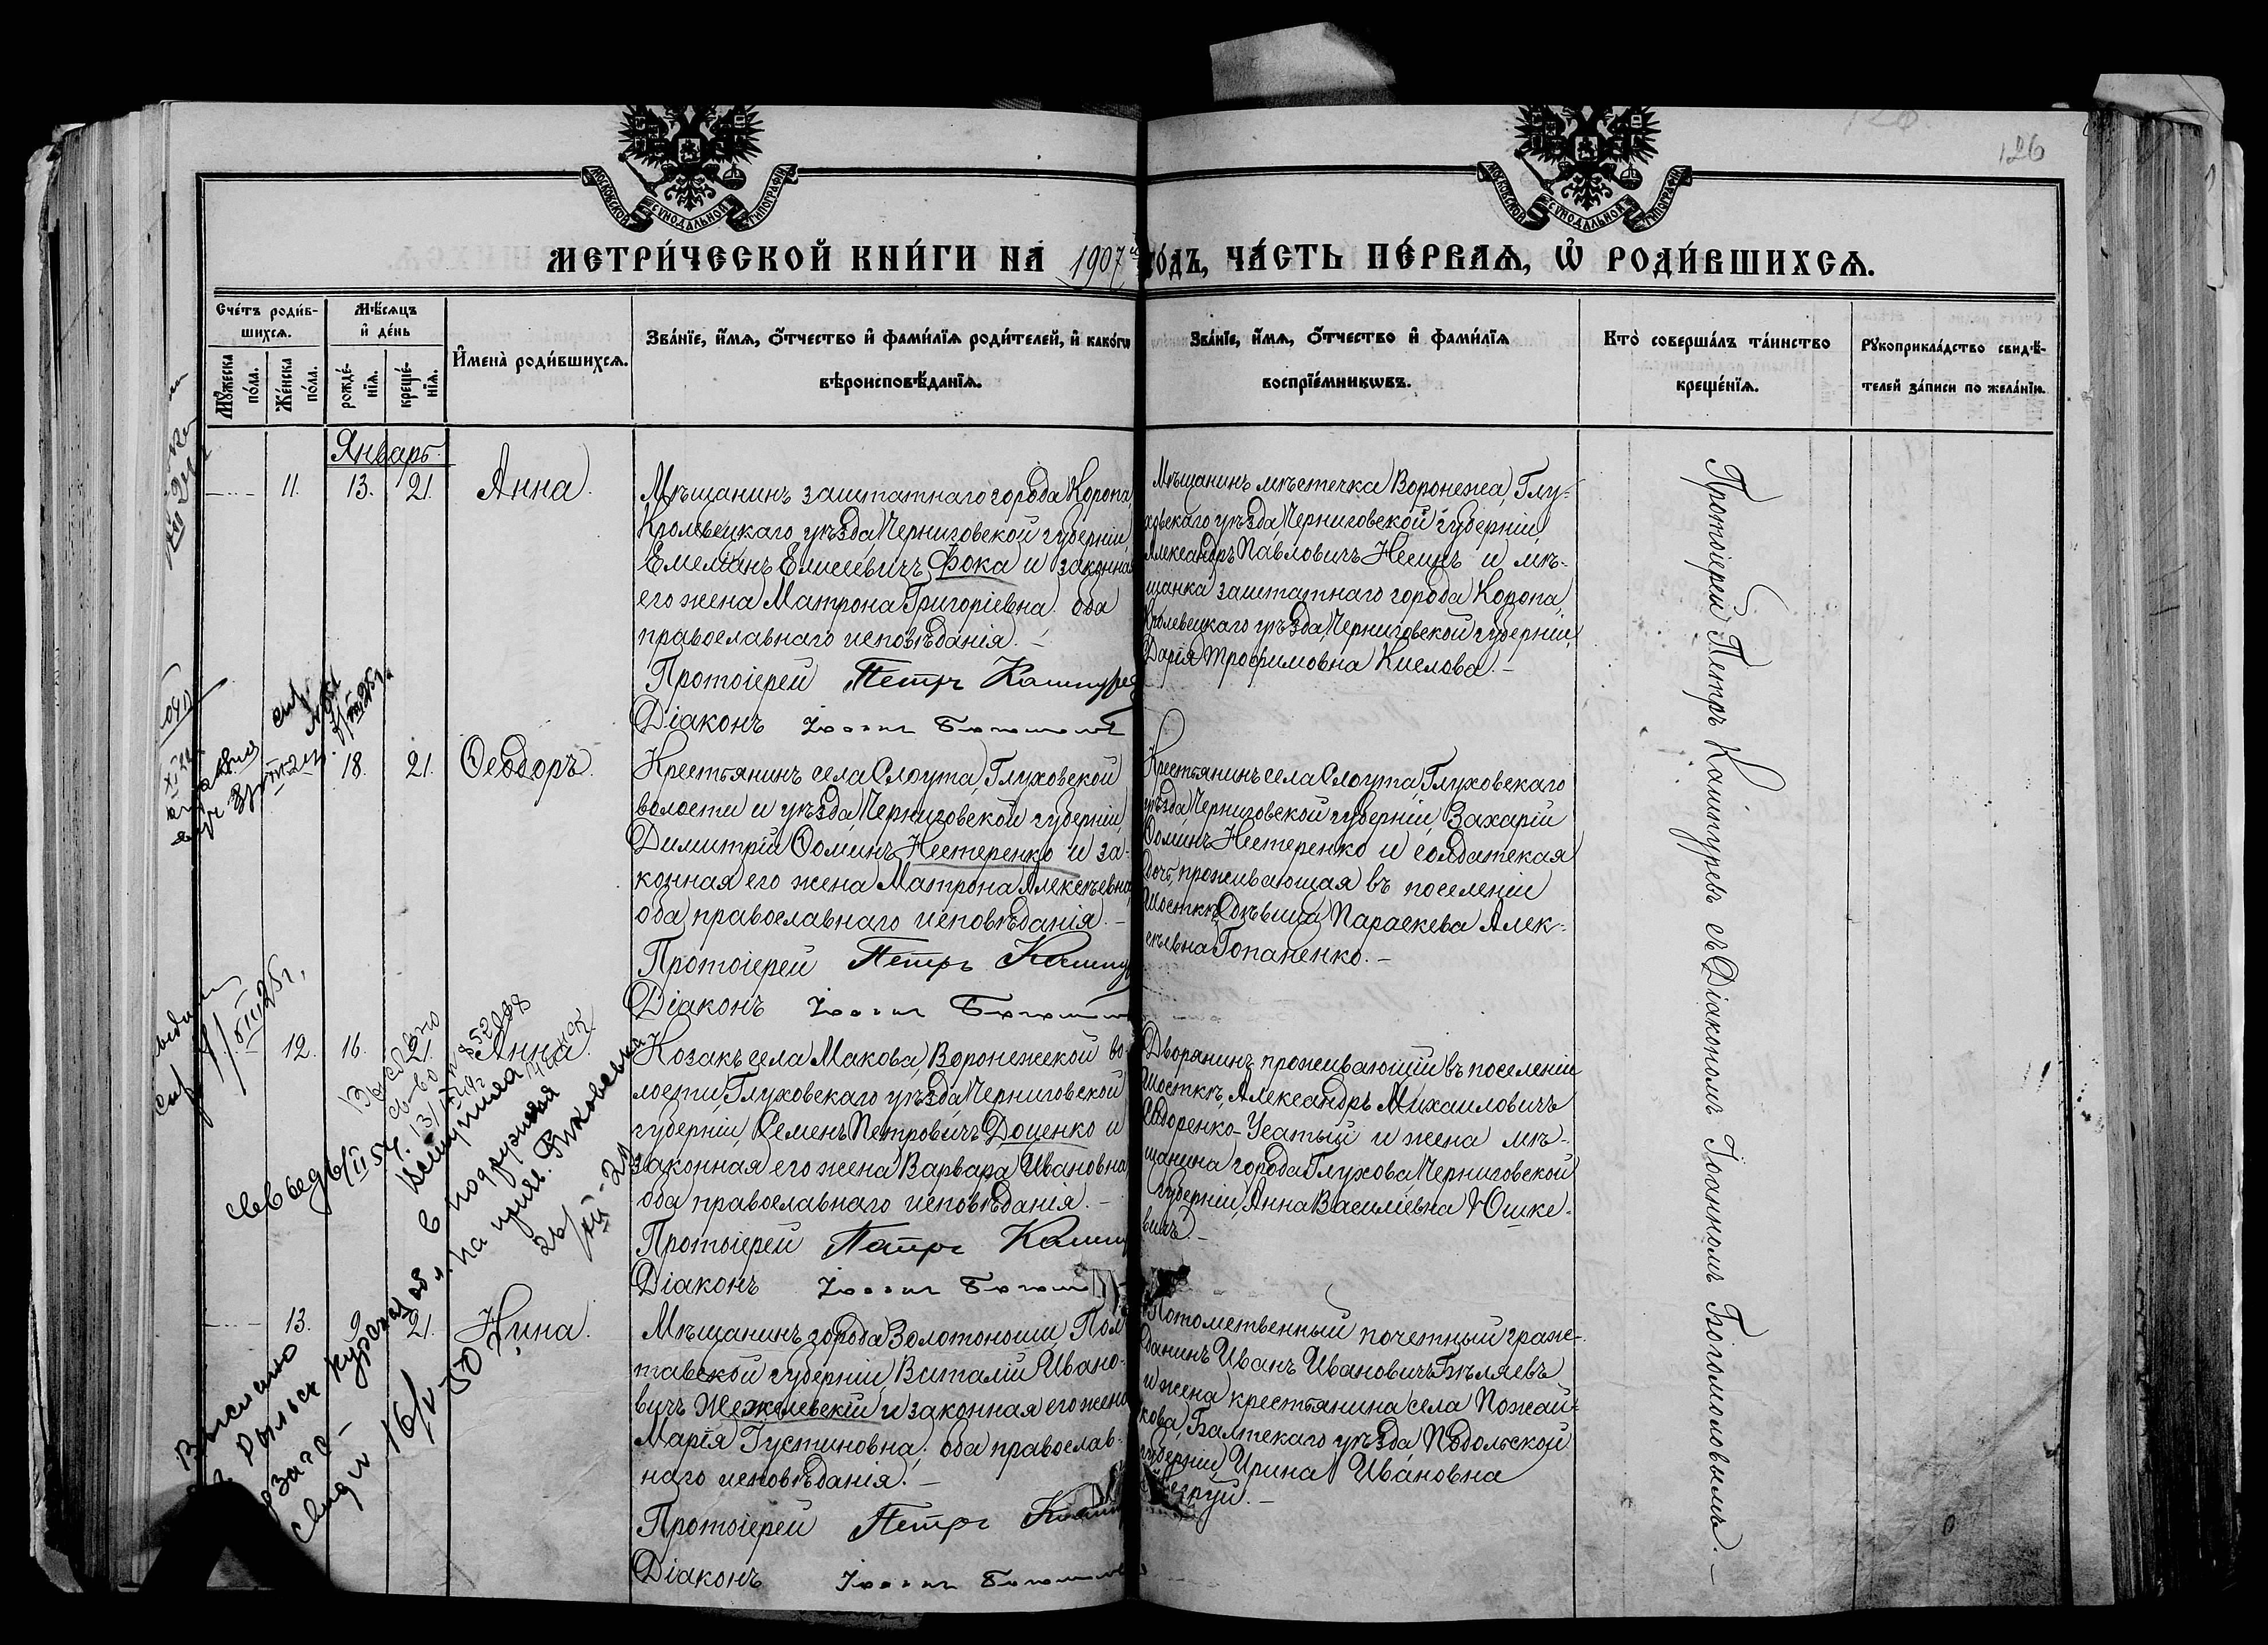 126
МОСКОВСКОЙ СУНОДАЛЬНОЙ ТИПОГРАФІИ
МОСКОВСКОЙ СУНОДАЛЬНОЙ ТИПОГРАФІИ
МЕТРИ́ЧЕСКОЙ КНИ́ГИ НА 1907й го́дъ, ЧА́СТЬ ПЕ́РВАѦ, Ѡ҆ РОДИ́ВШИХСѦ.
Сче́тъ роди́в-
шихсѧ.
Мꙋ́жеска по́ла.
Же́нска по́ла.
Мѣ́сѧцъ
и҆ де́нь
рожде́-
нїѧ.
креще́-
нїѧ.
И҆мена̀ роди́вшихсѧ.
Зва́нїе, и҆́мѧ, ѻ҆́тчество и҆ фами́лїѧ роди́телей, и҆ како́гѡ
вѣроисповѣ́данїѧ.
Зва́нїе, и҆́мѧ, ѻ҆́тчество и҆ фами́лїѧ
воспрїе́мникѡвъ.
Кто̀ соверша́лъ та́инство
креще́нїѧ.
Рꙋкоприкла́дство свидѣ́-
телей за́писи по жела́нїю.
Январь.
11. 13. 21. Анна.
Мѣщанинъ заштатнаго города Коропа,
Кролевецкаго уѣзда, Черниговской губерніи,
Емеліанъ Елисеевичъ Фока и законная
его жена Матрона Григоріевна, оба
православнаго исповѣданія. –
Протоіерей Петръ Кашпуревъ
Діаконъ Іоаннъ Богомоловъ
Мѣщанинъ мѣстечка Воронежа, Глу-
ховскаго уѣзда, Черниговской губерніи,
Александръ Павловичъ Несинъ и мѣ-
щанка заштатнаго города Коропа,
Кролевецкаго уѣзда, Черниговской губерніи,
Дарія Трофимовна Кислова. –
18. 21. Ѳеодоръ.
Крестьянинъ села Слоута, Глуховской
волости и уѣзда, Черниговской губерніи,
Димитрій Ѳоминъ Нестеренко и за-
конная его жена Матрона Алексѣевна,
оба православнаго исповѣданія. –
Протоіерей Петръ Кашпу
Діаконъ Іоаннъ Богомолов
Крестьянинъ села Слоута, Глуховскаго
уѣзда, Черниговской губерніи, Захарій
Ѳоминъ Нестеренко и солдатская
дочь, проживающая въ поселеніи
Шосткѣ, дѣвица Параскева Алек-
сѣевна Гопаненко. –
12. 16. 21. Анна.
Козакъ села Макова, Воронежской во-
лости, Глуховскаго уѣзда, Черниговской
губерніи, Семенъ Петровичъ Доценко и
законная его жена Варвара Ивановна,
оба православнаго исповѣданія. –
Протоіерей Петръ Кашпу
Діаконъ Іоаннъ Богомол
Дворянинъ, проживающій въ поселеніи
Шосткѣ, Александръ Михаиловичъ
Сидоренко-Усатый и жена мѣ-
щанина города Глухова, Черниговской
губерніи, Анна Василіевна Юшке-
вичъ. –
13. 9 21. Нина.
Мѣщанинъ города Золотоноши, Пол-
тавской губерніи, Виталій Ивано-
вичъ Межелевскій и законная его жена
Марія Густиновна, оба православ-
наго исповѣданія. –
Протоіерей Петръ Кашпу
Діаконъ Іоаннъ Богомолов
Потомственный почетный граж-
данинъ Иванъ Ивановичъ Бѣляевъ
и жена крестьянина села Пожай-
кова, Балтскаго уѣзда, Подольской
губерніи, Ирина Ивановна
Протоіерей Петръ Кашпуревъ съ Діакономъ Іоанномъ Богомоловымъ. –
16/V 50